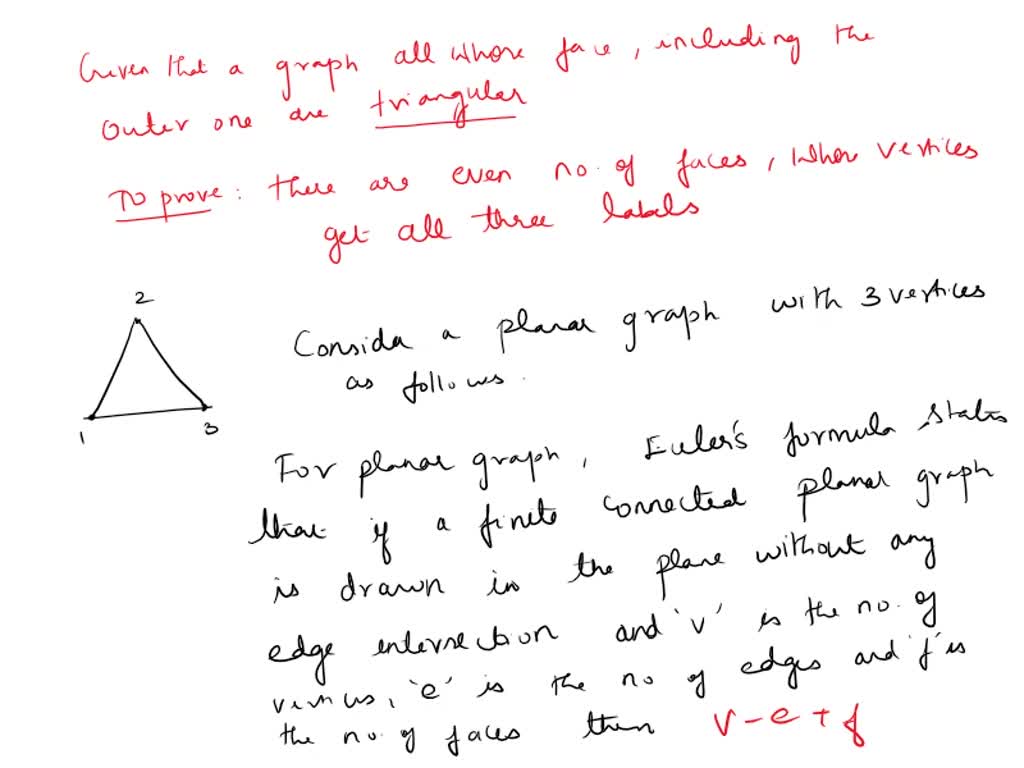 Given that a graph all whose face, including the
outer one are triangular
To prove: there are even no. of faces, when vertices
get all three labels
2
1
3
Consider a planar graph with 3 vertices
as follows.
For planar graph, Euler's formula states
that if a finite connected planar graph
is drawn in the plane without any
edge intersection and 'v' is the no. of
vertices, 'e' is the no of edges and 'f' is
the no. of faces then v - e + f